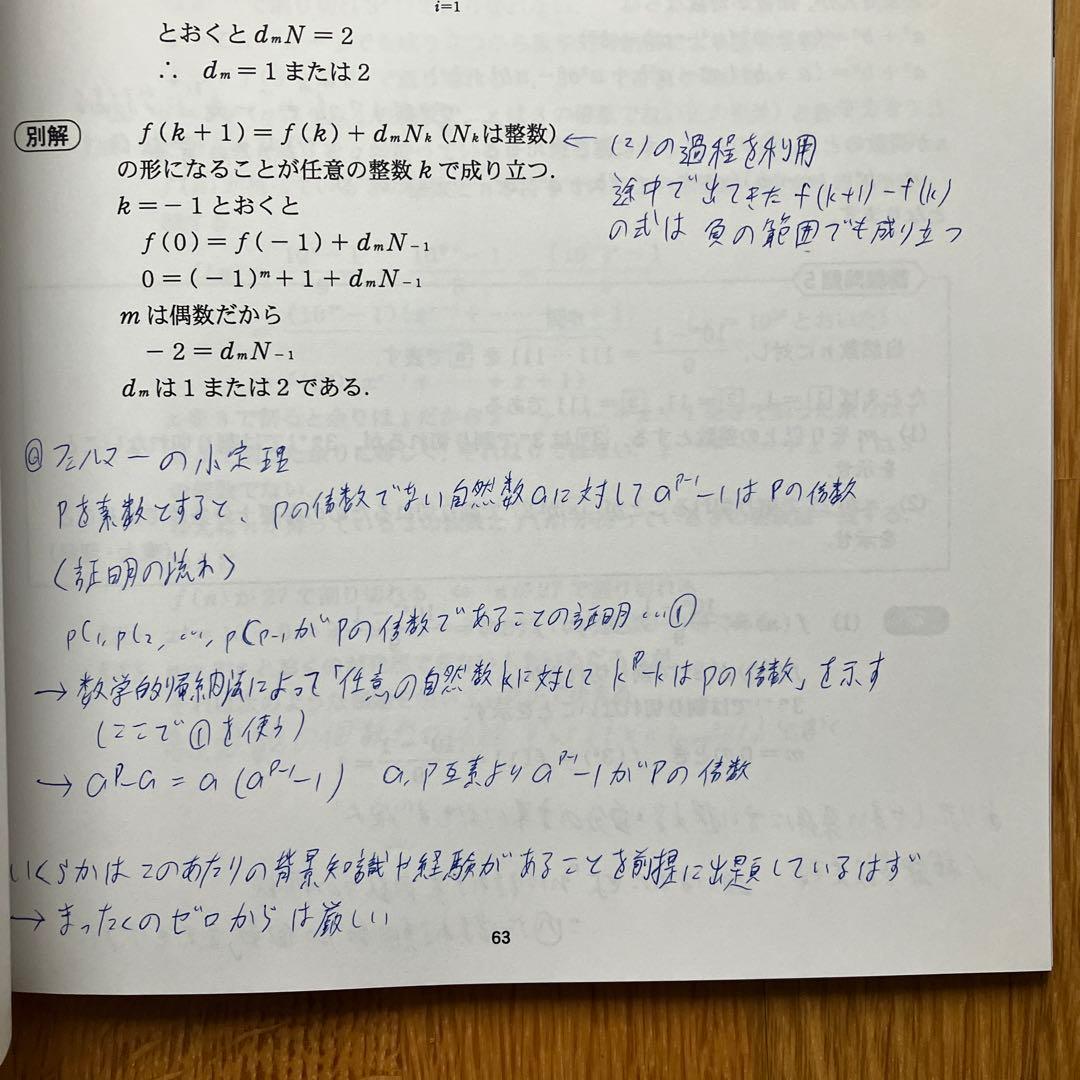 i=1
とおくと dₘN = 2
∴ dₘ = 1 または 2
別解 f(k+1) = f(k) + dₘNₖ (Nₖは整数)
の形になることが任意の整数 k で成り立つ.
k = −1 とおくと
f(0) = f(−1) + dₘN₋₁
0 = (−1)ᵐ + 1 + dₘN₋₁
m は偶数だから
−2 = dₘN₋₁
dₘ は 1 または 2 である.
← (2)の過程を利用
途中で出てきた f(k+1) − f(k)
の式は 負の範囲でも成り立つ
◎ フェルマーの小定理
Pを素数とすると、Pの倍数でない自然数aに対して a^{p-1} − 1 は Pの倍数
〈証明の流れ〉
pC₁, pC₂, …, pCp-1 が Pの倍数であることの証明 …①
→ 数学的帰納法によって「任意の自然数kに対して k^p − k は Pの倍数」を示す
(ここで①を使う)
→ a^p − a = a (a^{p-1} − 1) a, P互素より a^{p-1} − 1 が Pの倍数
いくらかは このあたりの背景知識や経験があることを前提に出題しているはず
→ まったくのゼロからは厳しい
63